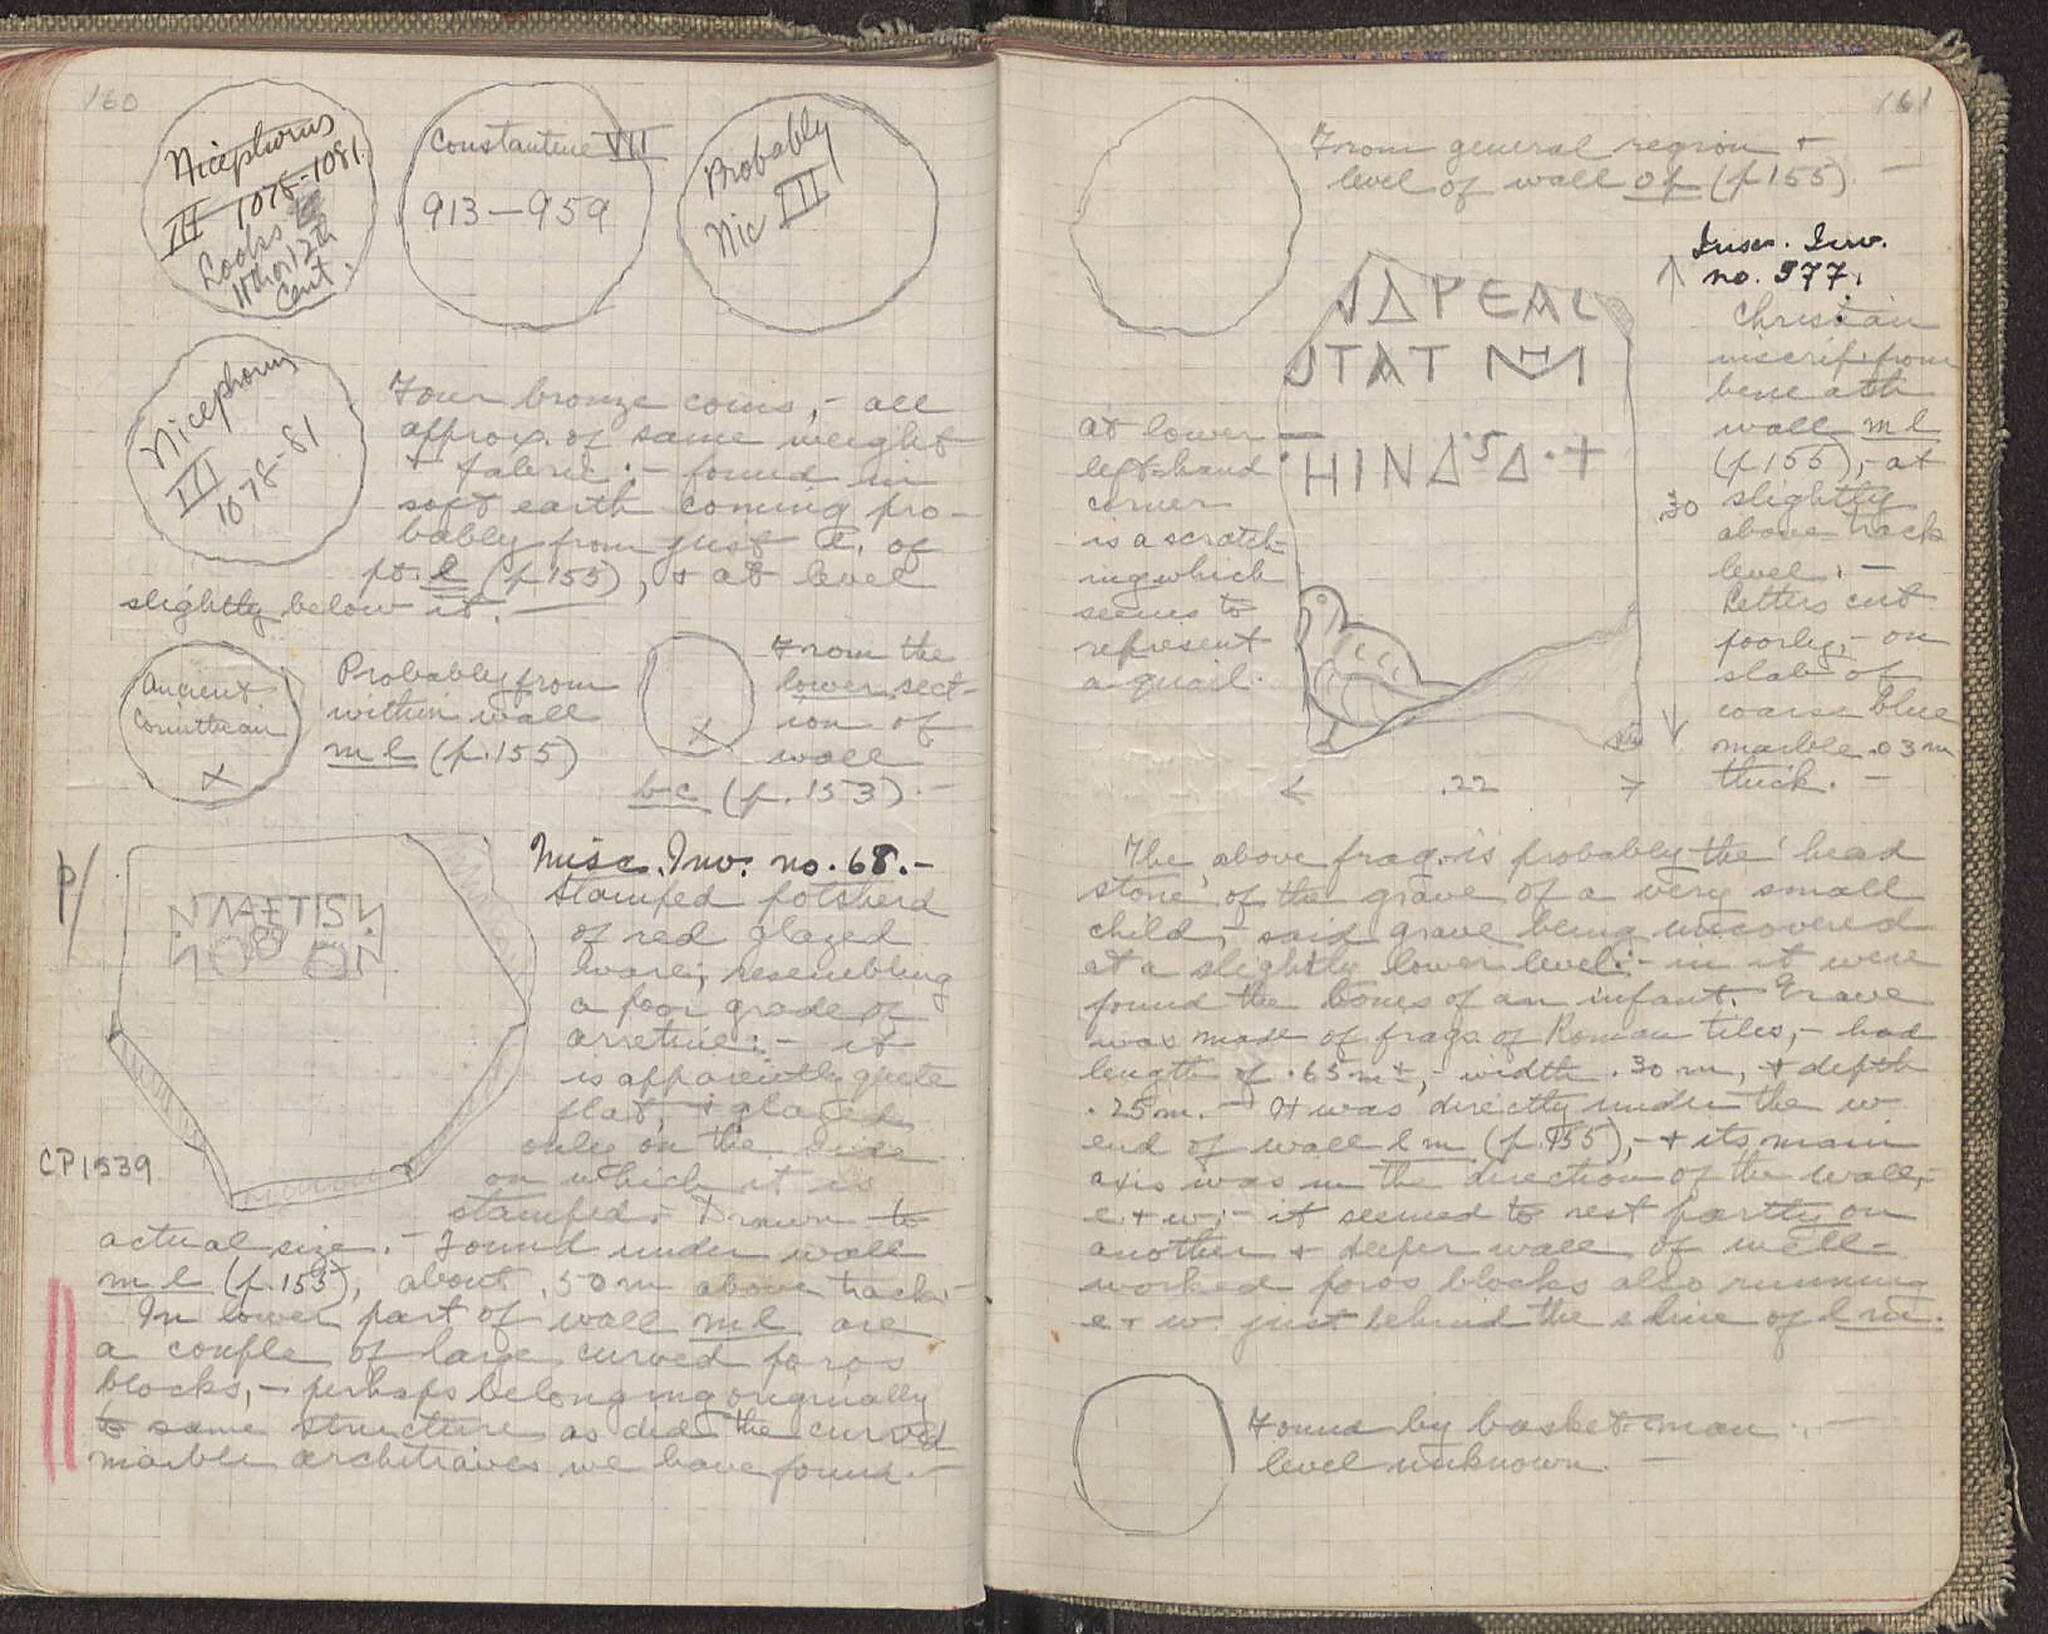 160
Nicephorus
III 1078-1081.
Looks
11th or 12th
Cent.
Constantine VII
913 — 959
Probably
Nic III
Nicephorus
III
1078-81
Four bronze coins, - all
approx. of same weight
+ fabric : - found in
soft earth coming pro-
bably from just E. of
pt. l (p 155), + at level
slightly below it. —
Ancient
Corinthian
X
Probably from
within wall
m l (p. 155)
X
From the
lower sect-
ion of
wall
b-c (p. 153). -
P/
METIS
CP 1539
Misc. Inv. no. 68. -
Stamped potsherd
of red glazed
ware; resembling
a poor grade of
arretine: - it
is apparently quite
flat, + glazed
only on the side
on which it is
stamped. - Drawn to
actual size. - Found under wall
m l (p. 155), about .50 m above track. -
In lower part of wall ml are
a couple of large curved poros
blocks, - perhaps belonging originally
to same structure as did the curved
marble architraves we have found. -
161
From general region +
level of wall op (p 155). —
Inscr. Inv.
no. 377.
ΔΡΕΑΣ
ΤΑΤ
ΗΙΝΔ S Δ · +
At lower
left-hand
corner
is a scratch-
ing which
seems to
represent
a quail.
Christian
inscrip. from
beneath
wall m l
(p 155), - at
slightly
above track
level. -
Letters cut
poorly, - on
slab of
coarse blue
marble .03 m
thick. -
.30
.22
The above frag. is probably the 'head
stone' of the grave of a very small
child, - said grave being uncovered
at a slightly lower level: - in it were
found the bones of an infant. Grave
was made of frags of Roman tiles, - had
length of .65 m ±, - width .30 m, + depth
.25 m. - It was directly under the w
end of wall l m (p. 155), - + its main
axis was in the direction of the wall, -
e + w; - it seemed to rest partly on
another + deeper wall of well-
worked poros blocks also running
e + w. just behind the s line of l m.
Found by basket-man. , —
level unknown. —